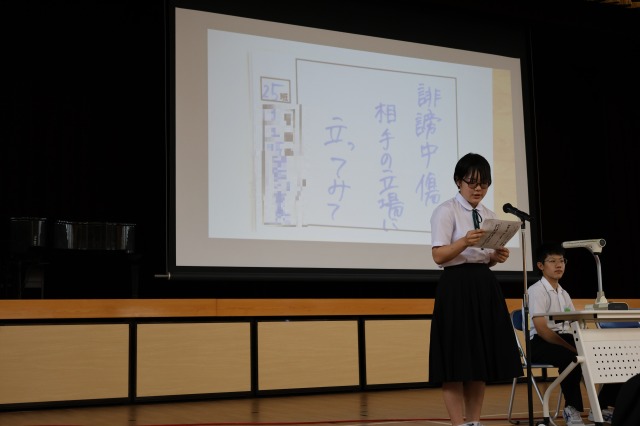 誹謗中傷
相手の立場に
立ってみて
25班